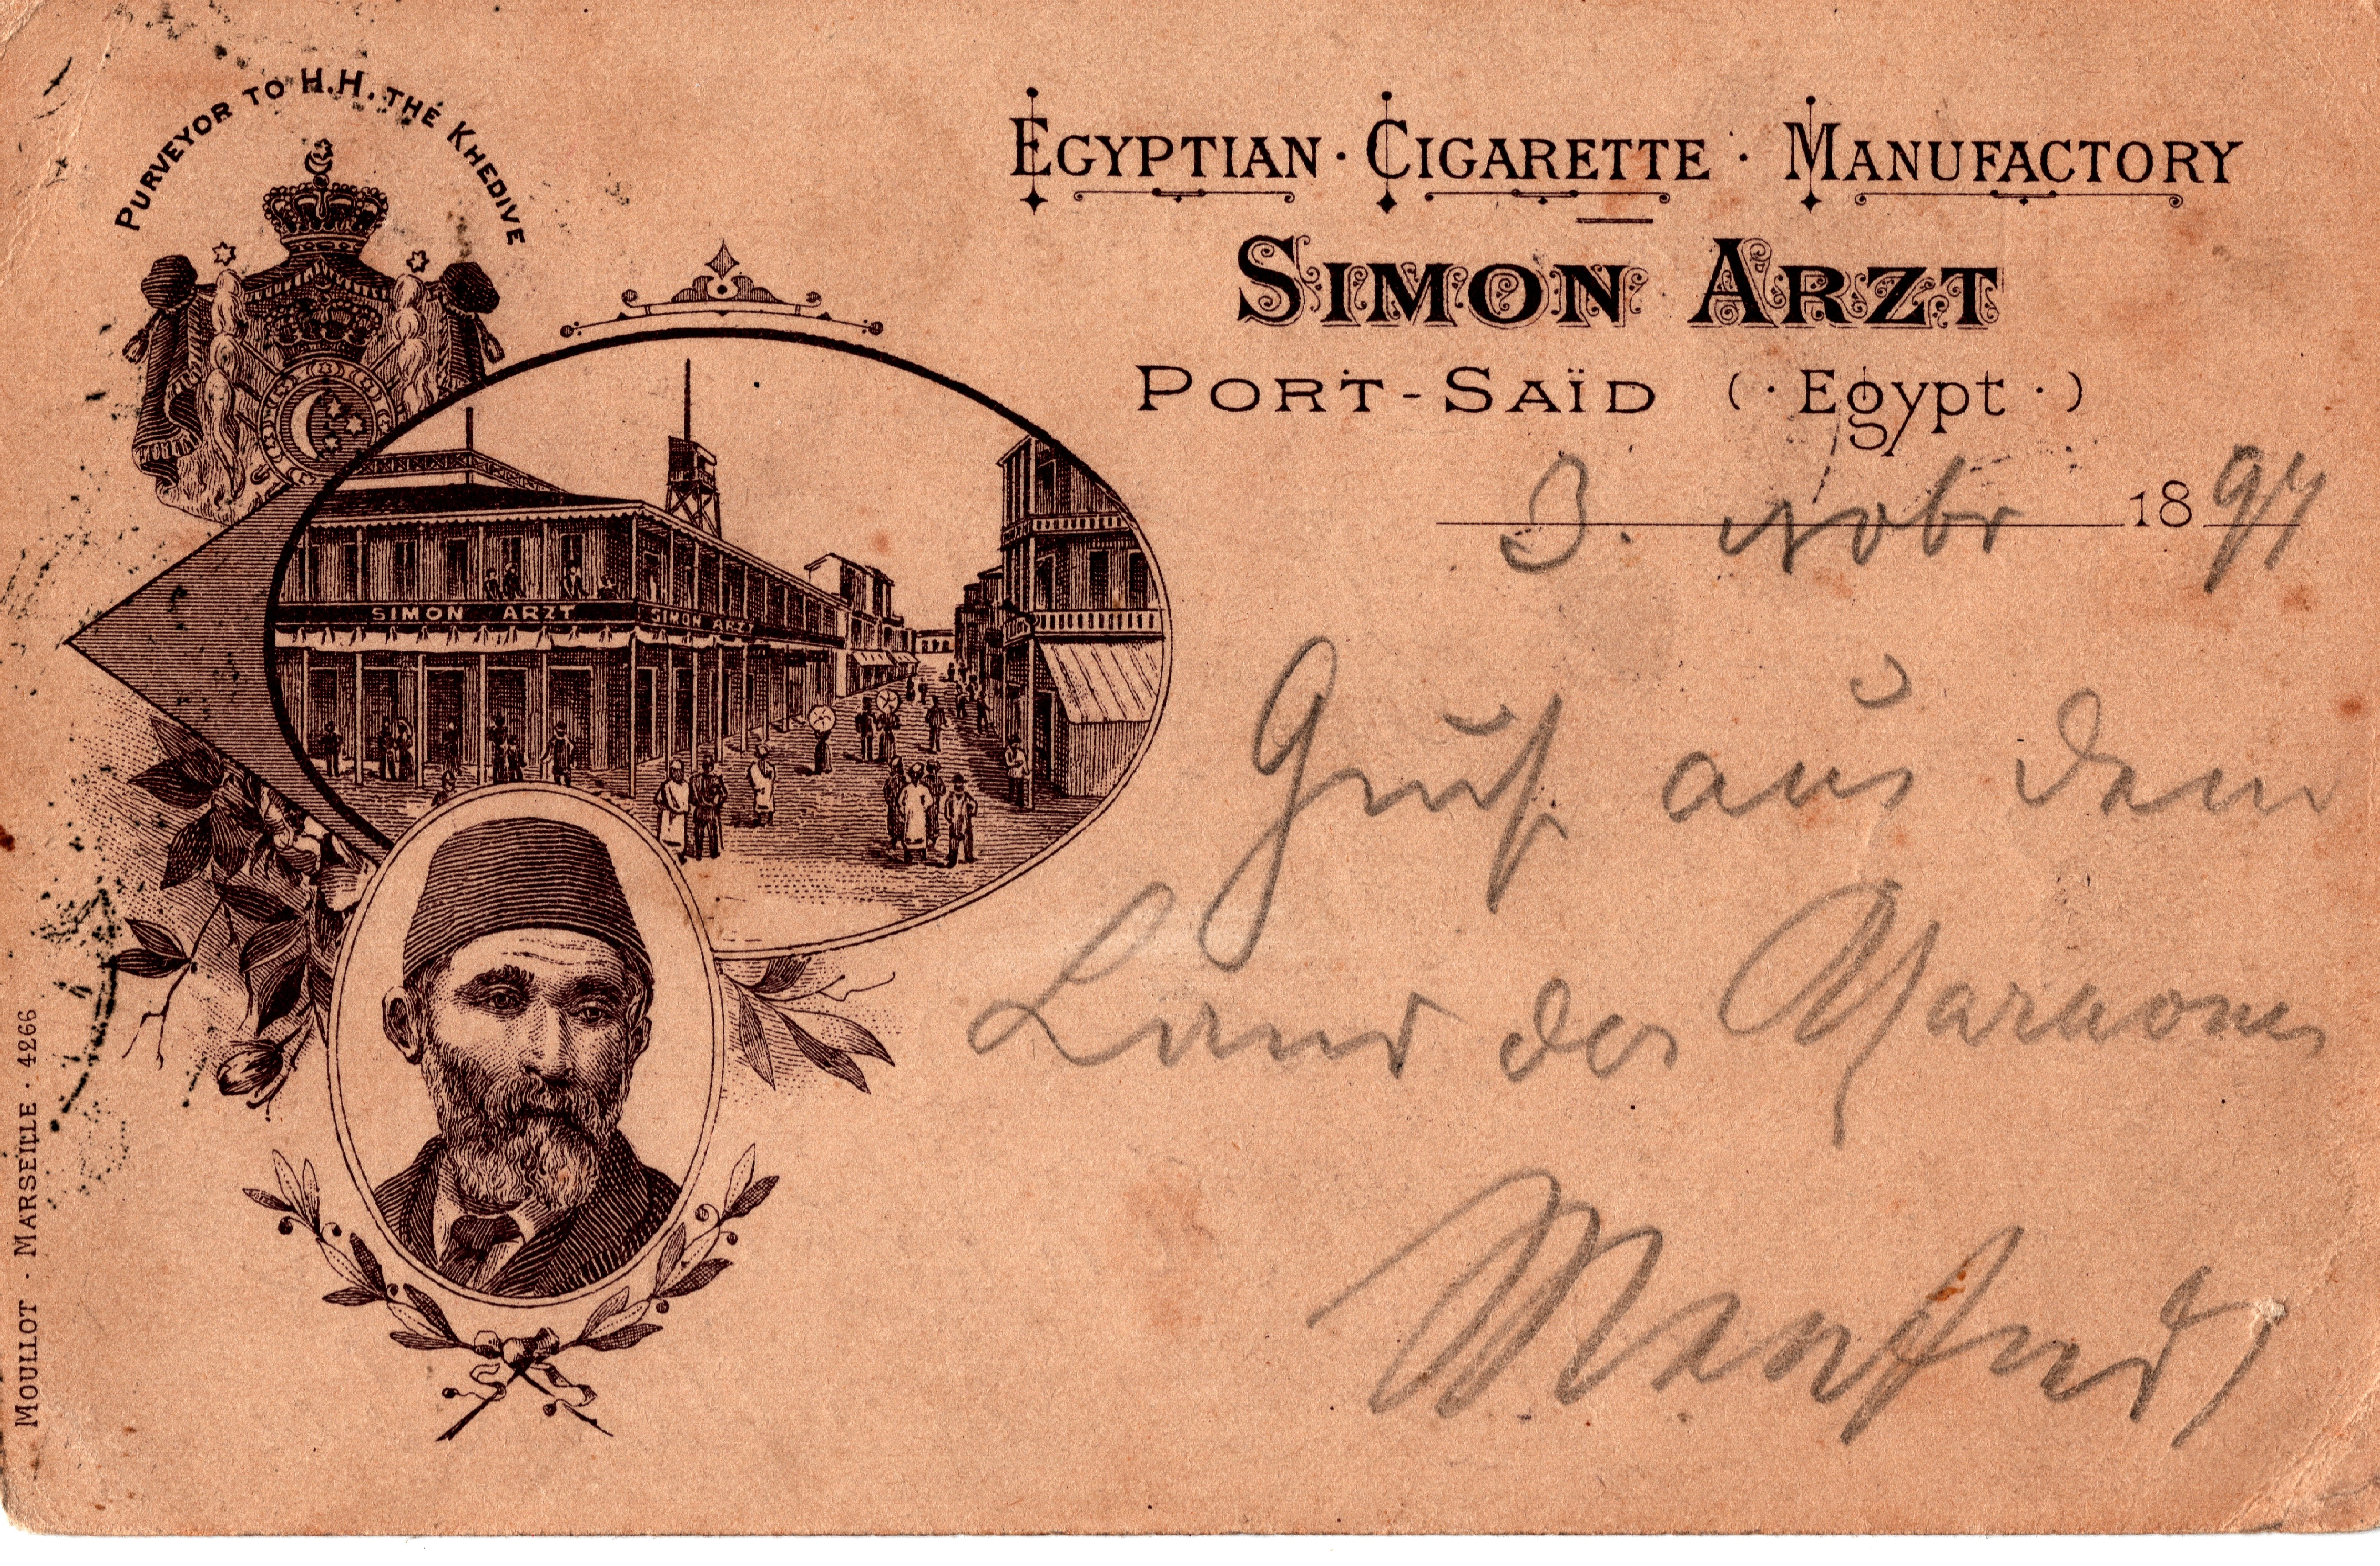 PURVEYOR TO H.H. THE KHEDIVE
EGYPTIAN · CIGARETTE · MANUFACTORY
SIMON ARZT
PORT-SAÏD (· Egypt ·)
3. Nobr 1897
SIMON ARZT
SIMON ARZT
Gruß aus dem
Land der Pharaonen
Manfred
MOULLOT · MARSEILLE · 4266